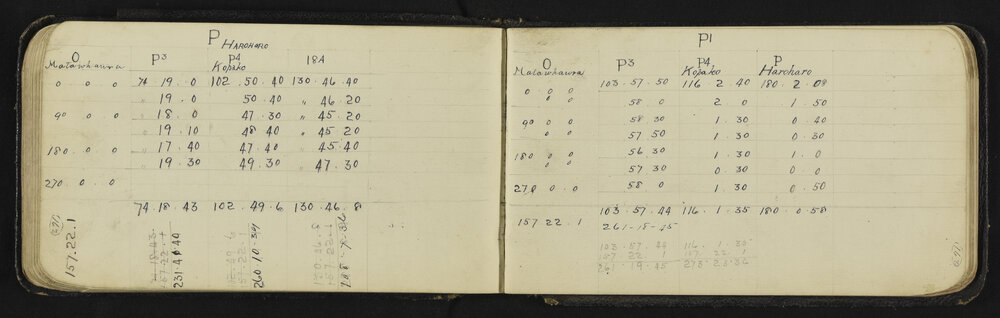 P Haroharo
O P3 P4 18A
Matawhaura Kopako
0 0 0 74 19 . 0 102 . 50 . 40 130 . 46 . 40
" 19 . 0 50 . 40 " 46 . 20
90 0 0 " 18 . 0 47 . 30 " 45 . 20
" 19 . 10 48 40 " 45 . 20
180 . 0 0 " 17 . 40 47 . 40 " 45 . 40
" 19 . 30 49 . 30 " 47 . 30
270 . 0 . 0
74 . 18 . 43 102 . 49 . 6 130 . 46 . 8
157 . 22 . 1
231 . 40
P1
O P3 P4 P
Matawhaura Kopako Haroharo
0 0 0 103 . 57 . 50 116 . 2 . 40 180 . 2 . 0
0 0 58 0 2 0 1 . 50
90 0 0 58 . 30 1 . 30 0 . 40
0 0 57 50 1 . 30 0 . 30
180 0 0 56 30 1 . 30 1 . 0
0 0 57 30 0 . 30 0 . 0
270 0 . 0 58 0 1 . 30 0 . 50
103 . 57 . 44 116 . 1 . 35 180 . 0 . 58
157 22 . 1 261 - 19 - 45
103 . 57 . 44 116 . 1 . 35
157 22 1 157 . 22 . 1
261 . 19 . 45 273 . 23 . 36